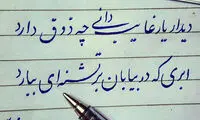 دیدار یار غایب دانی چه ذوق دارد
ابری که در بیابان بر تشنه‌ای ببارد